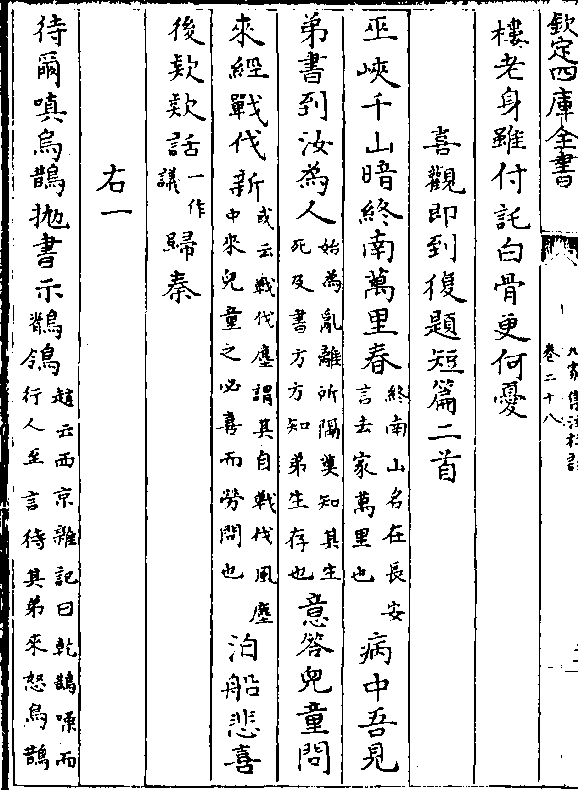 欽定四庫全書
卷二十八
樓老身雖付託白骨更何憂
喜觀即到復題短篇二首
巫峽千山暗終南萬里春終南山名在長安言去家萬里也病中吾見
弟書到汝為人始為亂離所隔莫知其生死及書方方知弟生存也意答兒童問
來經戰伐新或云戰伐塵謂其自戰伐風塵中來兒童之必喜而勞問也泊船悲喜
後欵欵話一作議歸秦
右一
待爾嗔烏鵲抛書示鶺鴒趙云西京雜記曰乾鵲噪而行人至言待其弟來怒烏鵲